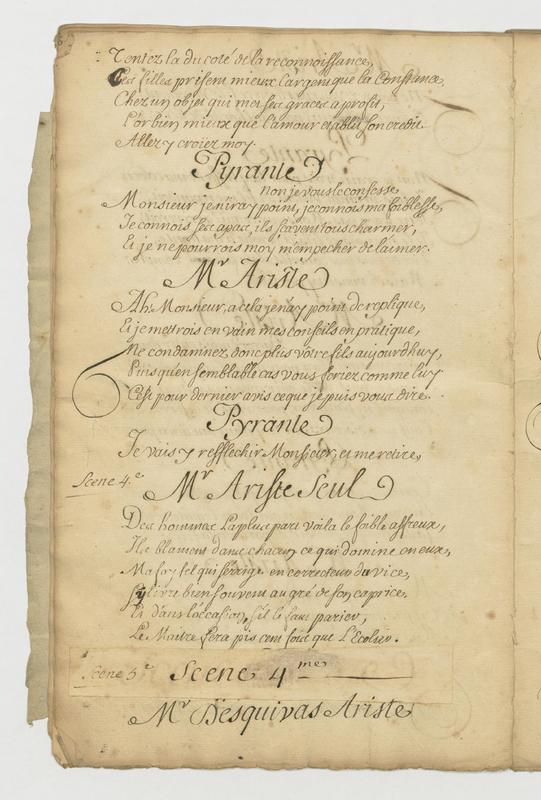 Tentez la du coté de la reconnoissance,
Les filles prisent mieux l'argent que la Constance,
Chez un objet qui met ses graces a profit,
L'or bien mieux que l'amour etablit son credit.
Allez y croiez moy.
Pyrante
Non je vous le confesse
Monsieur je n'iray point, je connois ma foiblesse,
Je connois ses apas, ils scavent tous charmer,
Et je ne pourrois moy m'empecher de l'aimer.
Mr Ariste
Ah, Monsieur, a cela je n'ay point de replique,
Et je mettrois en vain mes conseils en pratique,
Ne condaminez donc plus vôtre fils aujourdhuy,
Puisqu'en semblable cas vous feriez comme luy
C'est pour dernier avis ce que je puis vous dire.
Pyrante
Je vais y reffléchir Monsieur, et me retire,
Scene 4.e
Mr Ariste Seul
Des hommes la plus part voila le foible affreux,
Ils blament dans chacun ce qui domine en eux,
Ma foy tel qui s'érige en correcteur du vice,
Se livre bien souvent au gré de son caprice,
Et dans l'occasion, s'il le faut parier,
Le Maitre fera pis cent fois que l'Ecolier.
Scene 5e Scene 4me
Mr Desquivas Ariste